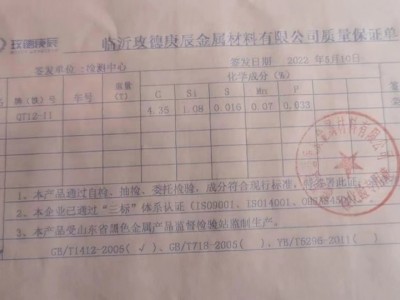 玫德庚辰
临沂玫德庚辰金属材料有限公司质量保证单
签发单位：检测中心 签发日期 2022 年 5月10日
牌(铁)号 车号 数量(T) 化学成分 (%)
C Si S Mn P
4.35 1.08 0.016 0.07 0.033
1、本产品通过自检、抽检、委托检验，成分符合现行标准，
2、本企业已通过“三标”体系认证（ISO9001、ISO14001、
3、本产品受山东省 金属产品监督检验站监制生产。
GB/T1412-2005( √ )、GB/T718-2005( )、